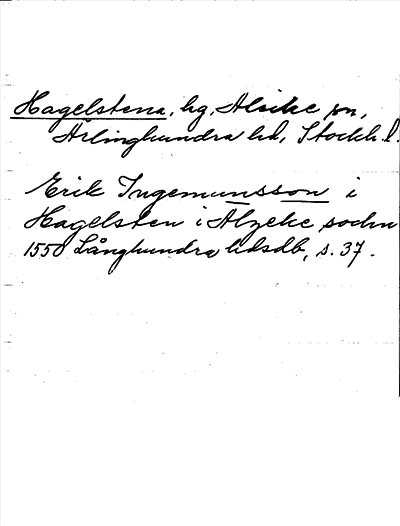 Hagelstena, hg, Alsike sn,
Ärlinghundra hd, Stockh. l.
Erik Ingemunsson i
Hagelsten i Alzeke sochn
1550 Långhundra hdsdb, s. 37.